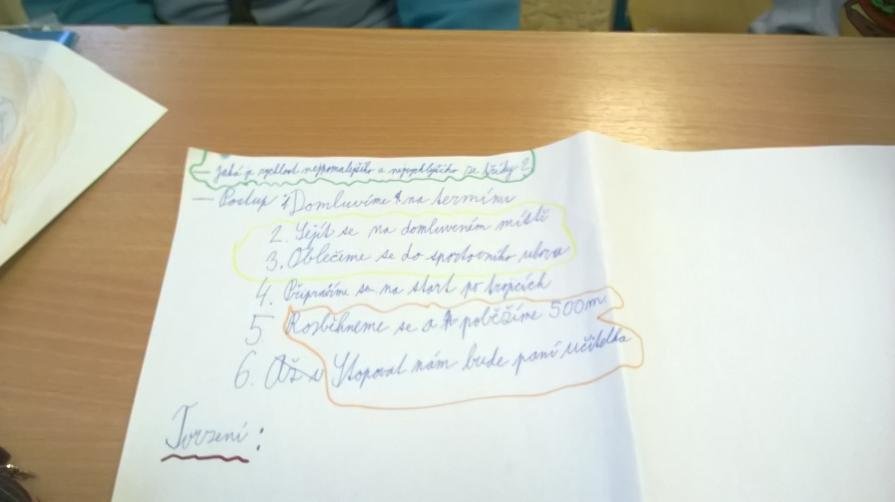 – Jaká je rychlost nejpomalejšího a nejrychlejšího ze třídy?
– Postup: 1. Domluvíme se na termínu
2. Sejít se na domluveném místě
3. Oblečeme se do sportovního úboru
4. Připravíme se na start po trojicích
5 Rozběhneme se a poběžíme 500m
6. Až Stopovat nám bude paní učitelka
Tvrzení: